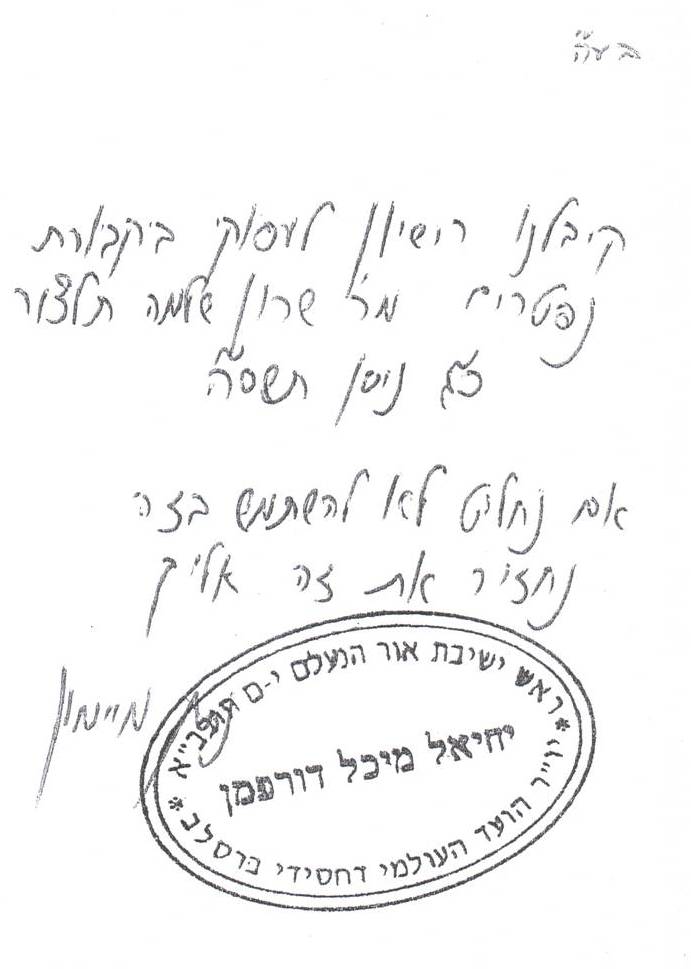 בעה"
קיבלנו רישיון לעסוק בקבורת
נפטרים מר' שרון שלמה תלצור
כ"ג ניסן תשס"ה
אם נחליט לא להשתמש בזה
נחזיר את זה אליך
מיימון
ראש ישיבת אור הנעלם י-ם תובב"א
יחיאל מיכל דורפמן
* יו"ר הועד העולמי דחסידי ברסלב *